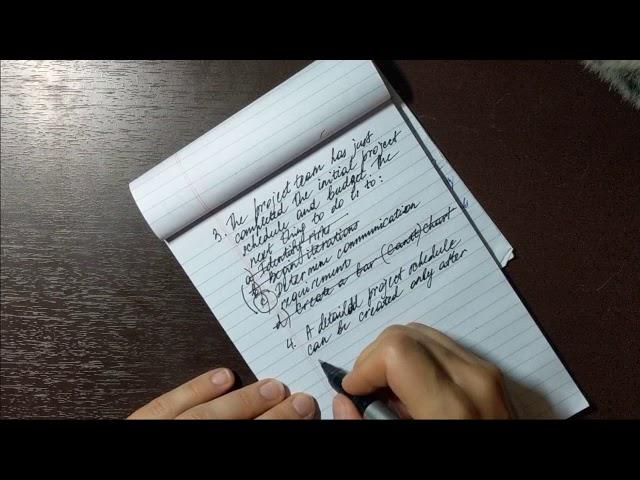 3. The project team has just
completed the initial project
schedule and budget. The
next thing to do is to:
a) Identify risks
b) Begin iterations
c) Determine communication
requirements
d) Create a bar (Gantt) chart
4. A detailed project schedule
can be created only after